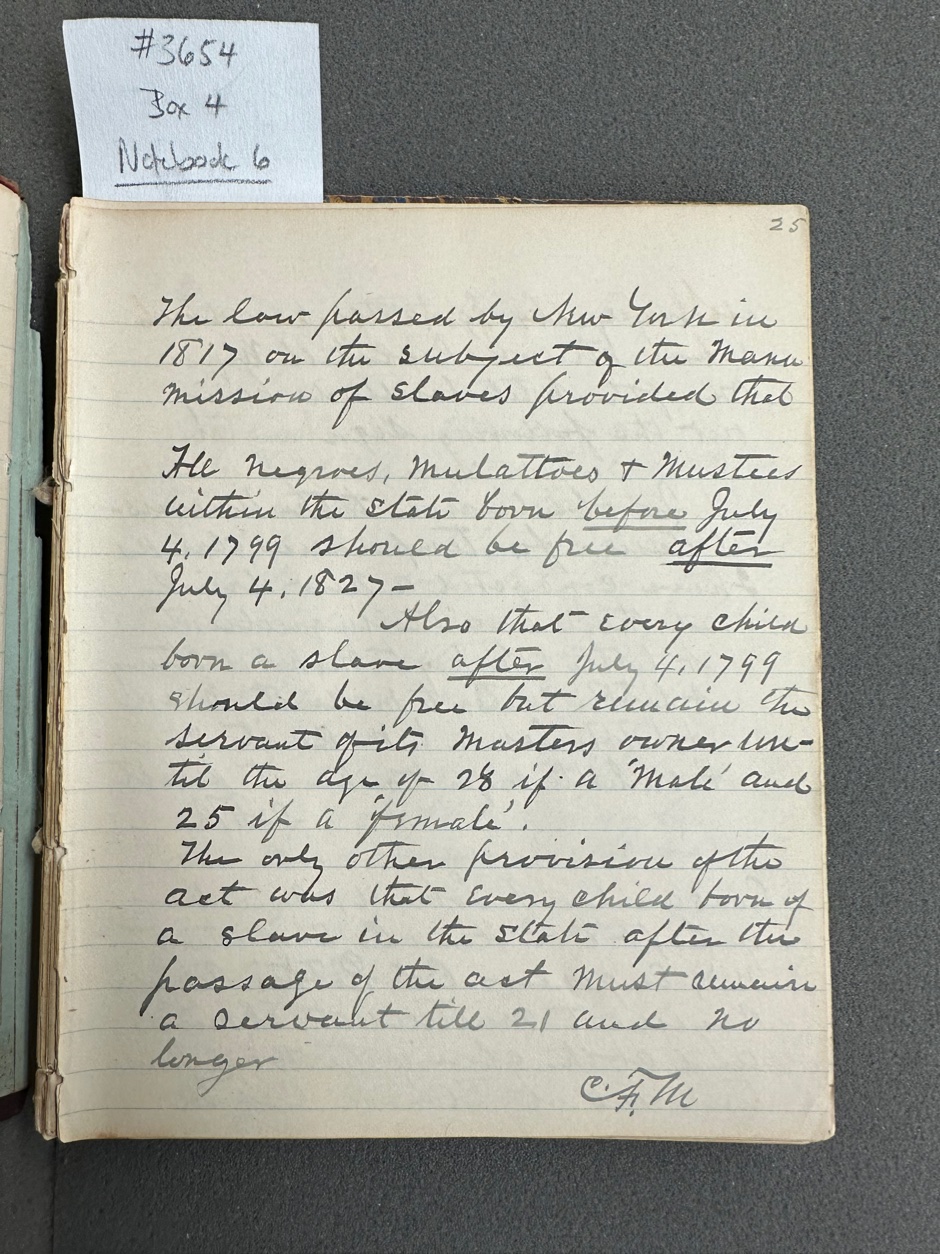 #3654
Box 4
Notebook 6
25
The law passed by New York in
1817 on the subject of the Manu
mission of Slaves provided that
All Negroes, Mulattoes + Mustees
within the State born before July
4, 1799 should be free after
July 4, 1827—
Also that every child
born a slave after July 4, 1799
should be free but remain the
servant of its Masters owner un-
til the age of 28 if a 'Male' and
25 if a 'female'.
The only other provision of the
act was that every child born of
a slave in the State after the
passage of the act must remain
a servant till 21 and no
longer
C.F.M